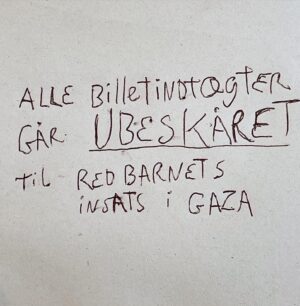 ALLE BilletiNDtægTER
GÅR UBESKÅRET
til RED BARNETS
iNSATS i GAZA